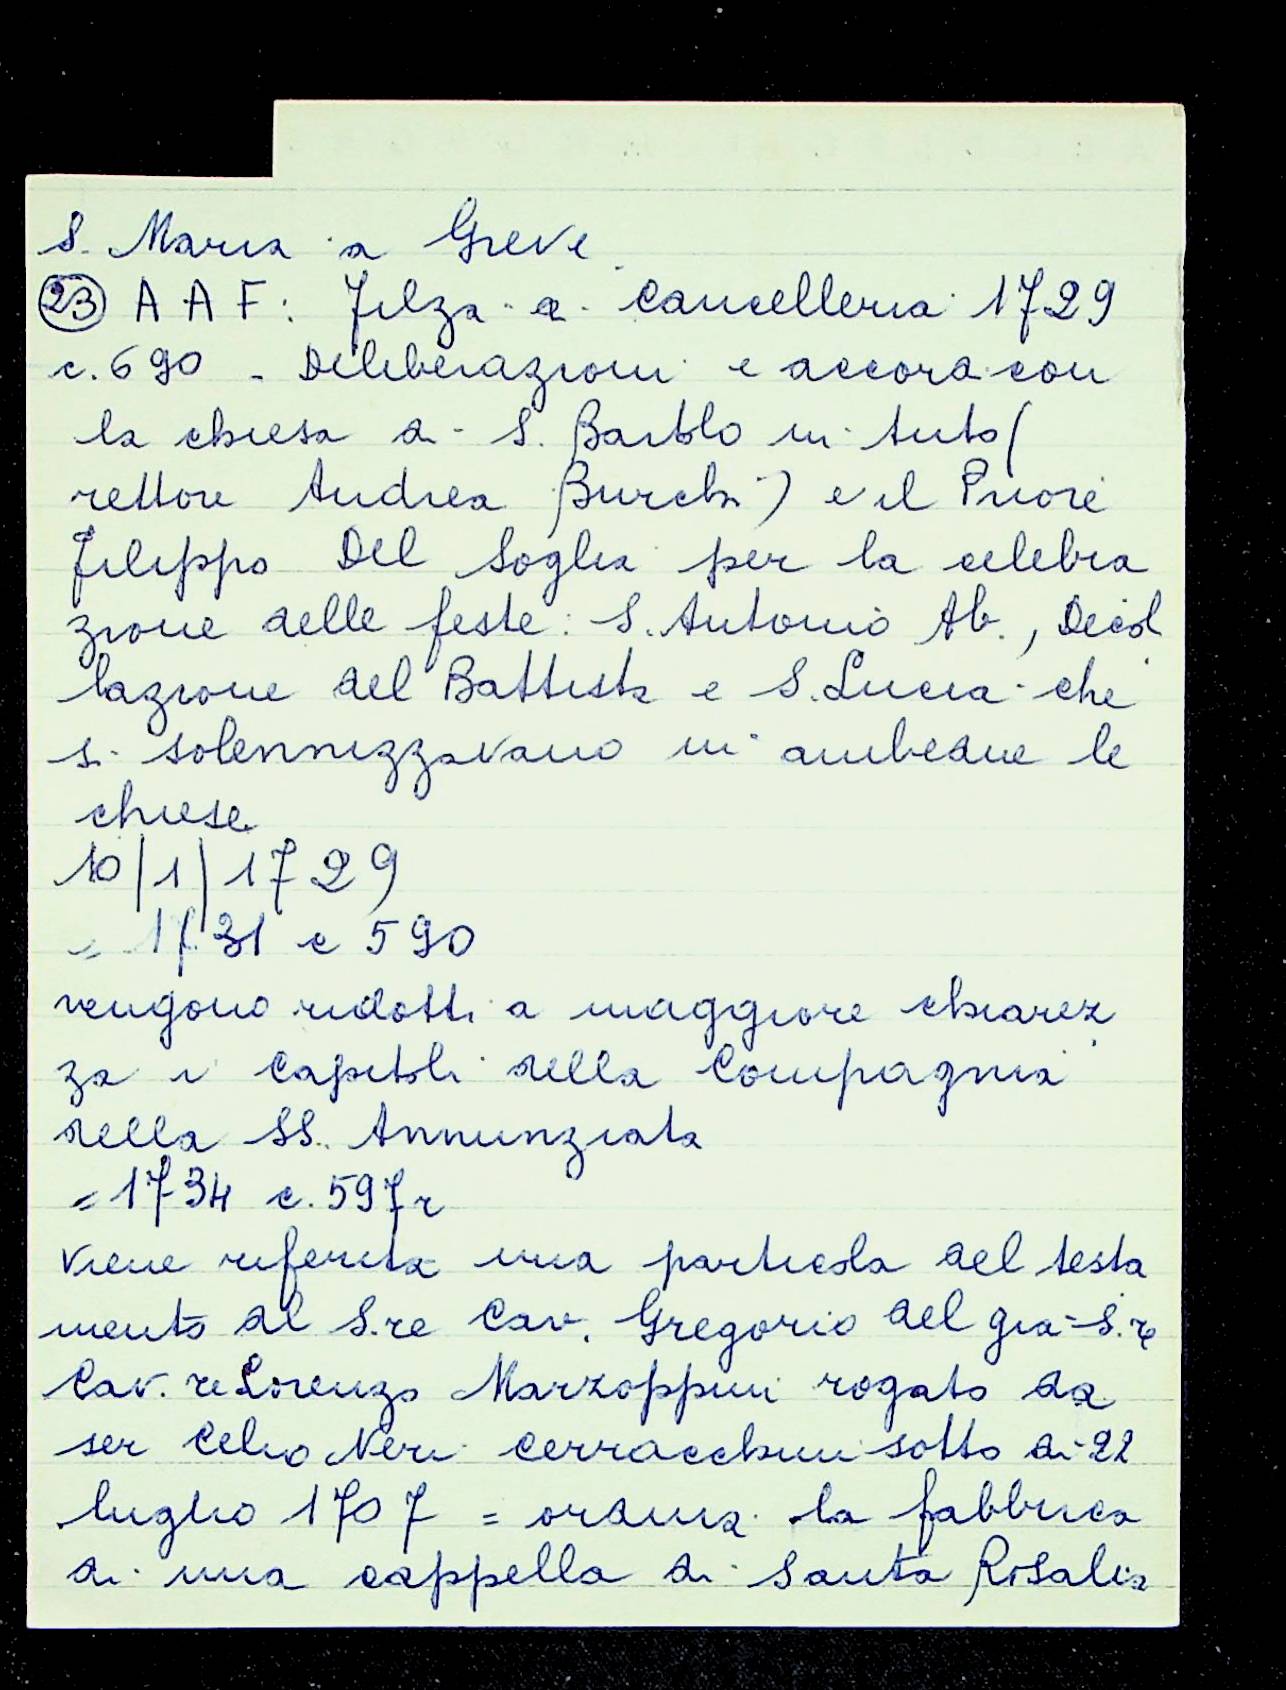 S. Maria a Greve
23 A A F: Filza di Cancelleria 1729
c. 690 - Deliberazioni e accordi con
la chiesa di S. Bartolo in tuto (
rettore Andrea Burchi) e il Priore
Filippo Del Soglia per la celebra
zione delle feste: S. Antonio Ab., Decol
lazione del Battista e S. Lucia che
si solennizzavano in ambedue le
chiese
10/1/1729
= 1731 c 590
vengono ridotti a maggiore chiarez
za i Capitoli della Compagnia
della SS. Annunziata
= 1734 c. 597r
viene riferita una particola del testa
mento del S.re Cav. Gregorio del già S.re
Cav.re Lorenzo Marzoppini rogato da
ser Celio Neri Cerracchini sotto di 22
luglio 1707 = ordina la fabbrica
di una cappella di Santa Rosalia